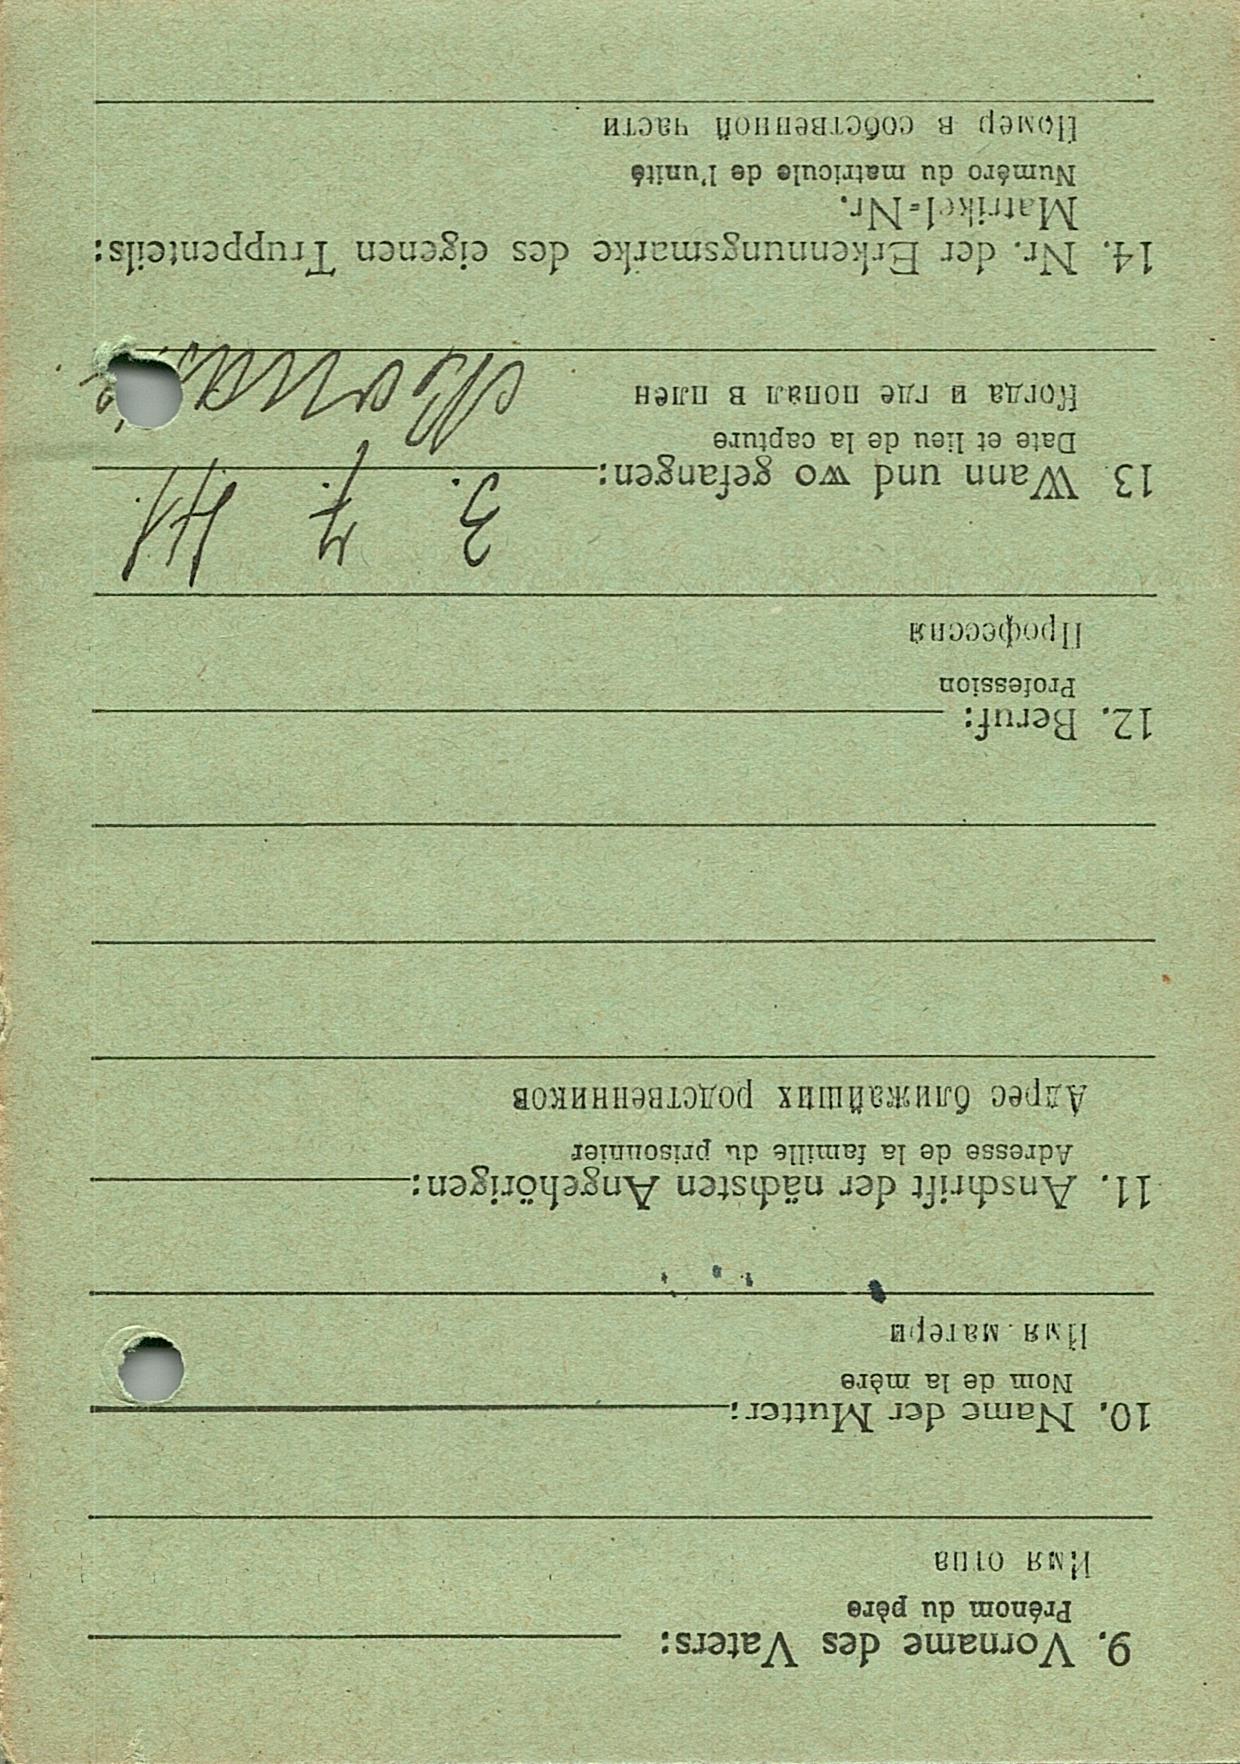 9. Vorname des Vaters:
Prénom du père
Имя отца
10. Name der Mutter:
Nom de la mère
Имя матери
11. Anschrift der nächsten Angehörigen:
Adresse de la famille du prisonnier
Адрес ближайших родственников
12. Beruf:
Profession
Профессия
13. Wann und wo gefangen: 3. 7. 41.
Date et lieu de la capture
Когда и где попал в плен
14. Nr. der Erkennungsmarke des eigenen Truppenteils:
Matrikel=Nr.
Numéro du matricule de l'unité
Номер в собственной части